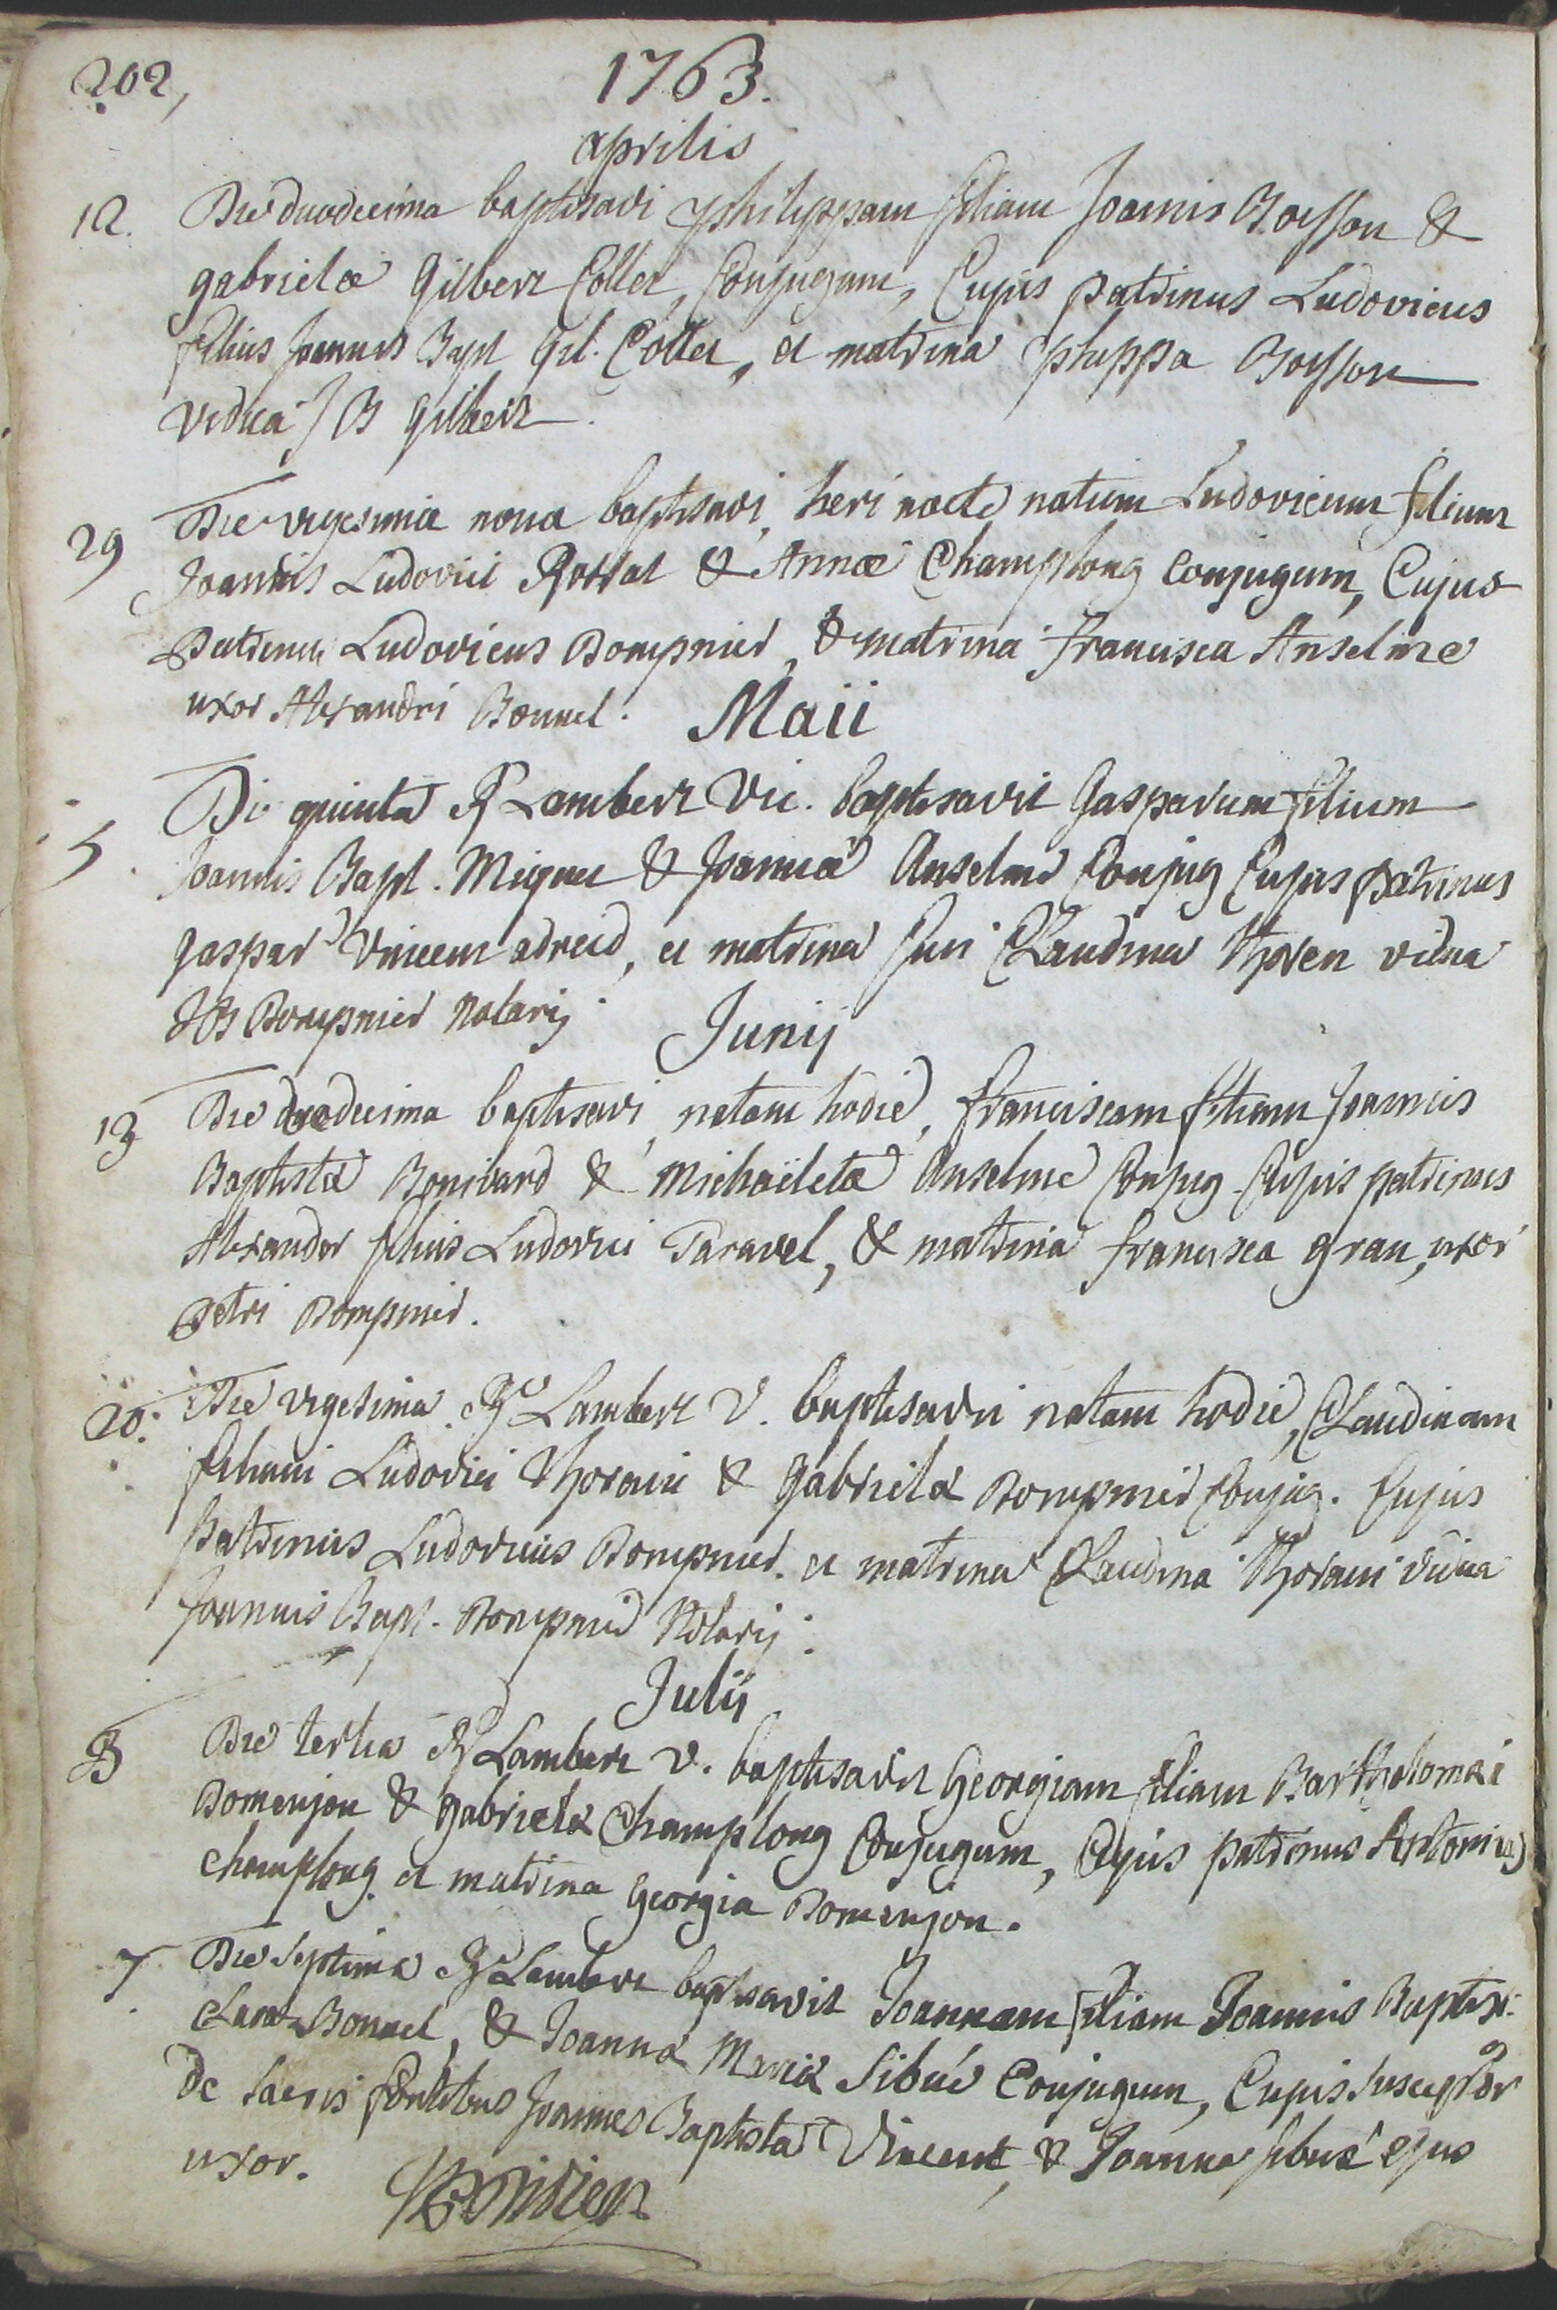 202,
1763.
aprilis
12. Die duodecima baptisavi philippam filiam Joannis Boisson &
gabrielæ Gilbert Collet, Conjugum, Cujus patrinus Ludovicus
filius Joannis Bapt Gil. Collet, et matrina phippa Boisson
vidua J B Gilbert.
29 Die vigesima nona baptisavi, heri nocte natum Ludovicum filium
Joannis Ludovici Rostat & Annæ Champlong Conjugum, Cujus
Patrinus Ludovicus Dompnier, & matrina francisca Anselme
uxor Alexandri Bonnel.
Maii
5 Die quinta R Lambert Vic. baptisavit Gasparum filium
Joannis Bapt. Miguet & Joannæ Anselme Conjug Cujus patrinus
gaspar Vincent adreid, et matrina fuit Claudina Thoren vidua
JB Dompnier Notarij.
Junij
13 Die duodecima baptisavi, natam hodie, franciscam filiam Joannis
Baptistæ Bonivard & Michaëletæ Anselme Conjug Cujus patrinus
Alexander filius Ludovici Taravel, & matrina francisca gran, uxor
Petri Dompnier.
20. Die vigesima R Lambert V. baptisavit natam hodie, Claudinam
filiam Ludovici Thoravi & gabrielæ Dompnier Conjug. Cujus
Patrinus Ludovicus Dompnier et matrina Claudina Thoravi vidua
Joannis Bapt. Dompnier Notarij.
Julij
3 Die tertia R Lambert V. baptisavit Georgiam filiam Bartholomæi
Domenjon & gabrielæ Champlong Conjugum, Cujus patrinus Antonius
Champlong et matrina Georgia Domenjon.
7 Die septima R Lambert baptisavit Joannam filiam Joannis Baptistæ
Bonnel, & Joannæ Mariæ Sibué Conjugum, Cujus susceptor
de sacris fontibus Joannes Baptista Vincent, & Joanna sibué ejus
uxor.